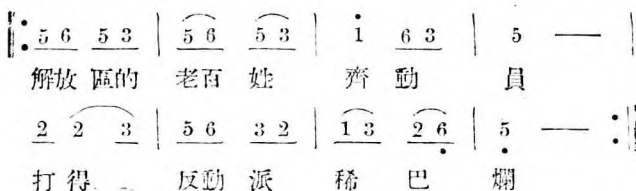 5 6 5 3 | 5 6 5 3 | 1 6 3 | 5 — |
解放區的 老百姓 齊動員
2 2 3 | 5 6 3 2 | 1 3 2 6 | 5 — :|
打得 反動派 稀巴爛